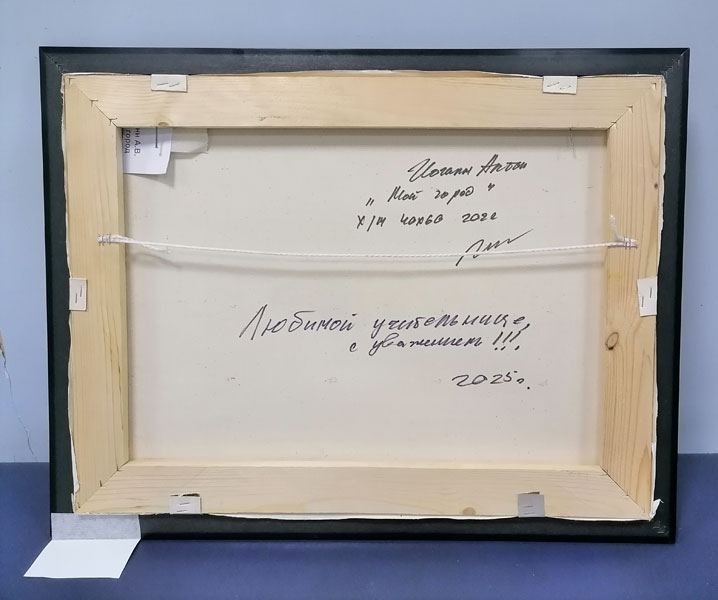 нн А.В.
город
Иоганн Антон
„ Мой город "
х/м 40х60 2022
Любимой учительнице,
с уважением !!!,
2025г.